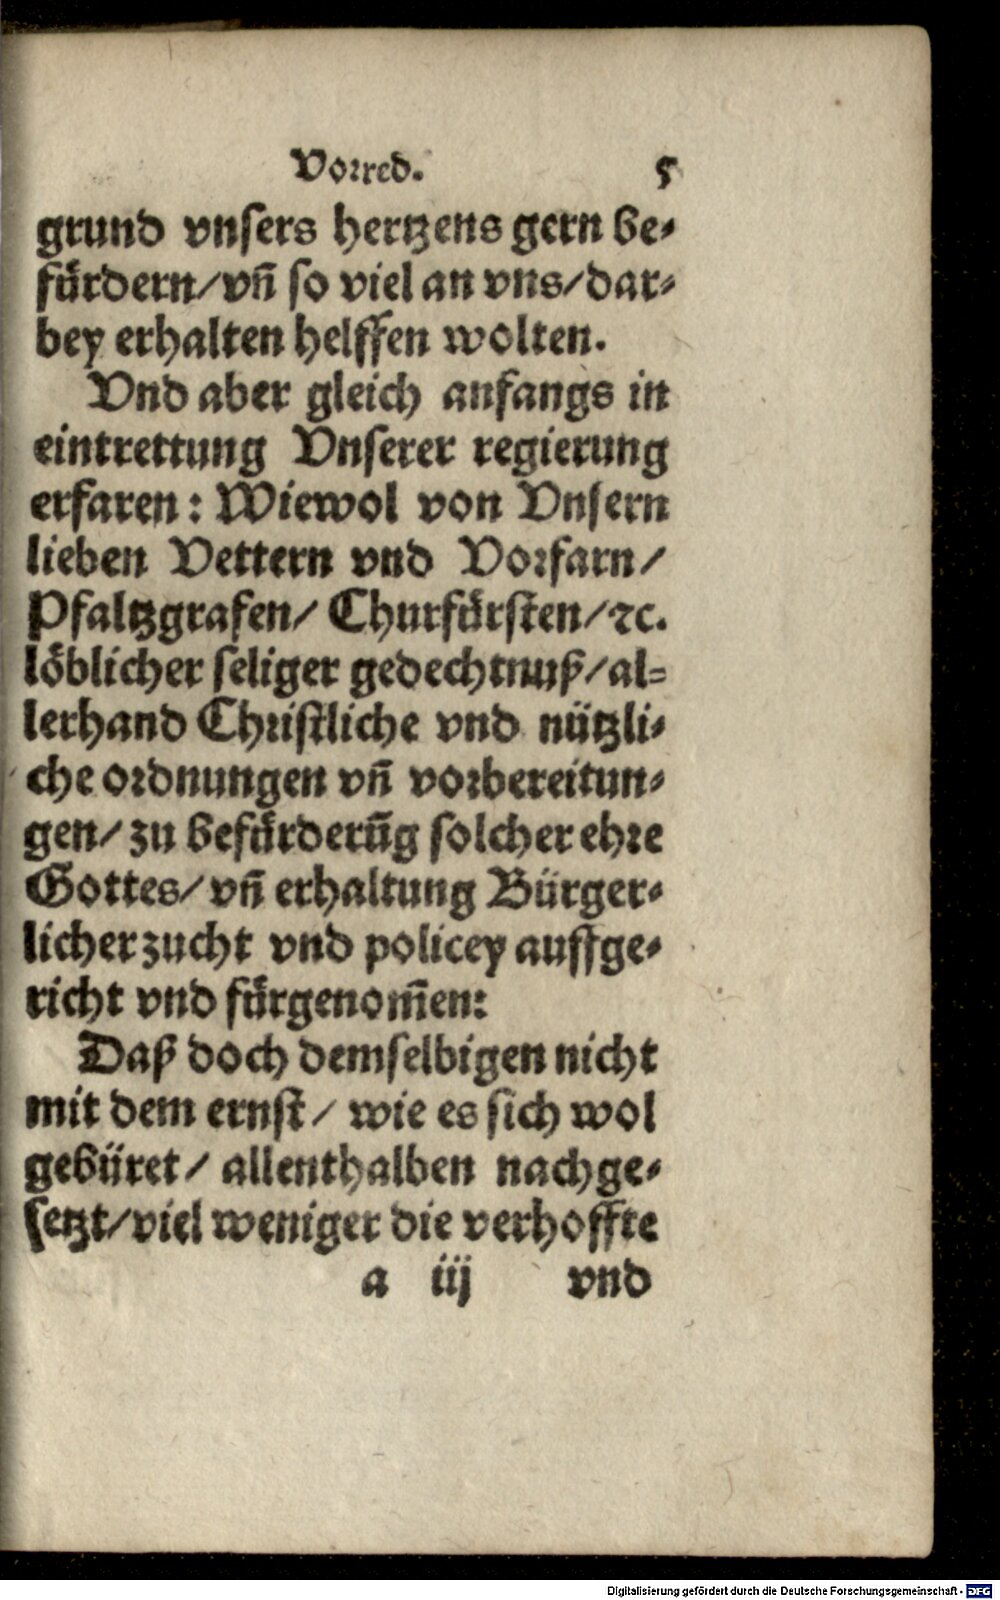 Vorred. 5
grund vnsers hertzens gern be-
fürdern/vñ so viel an vns/dar-
bey erhalten helffen wolten.
Vnd aber gleich anfangs in
eintrettung Vnserer regierung
erfaren: Wiewol von Vnsern
lieben Vettern vnd Vorfarn/
Pfaltzgrafen/ Churfürsten/ꝛc.
löblicher seliger gedechtnuß/al-
lerhand Christliche vnd nützli-
che ordnungen vñ vorbereitun-
gen/ zu befürderūg solcher ehre
Gottes/ vñ erhaltung Bürger-
licher zucht vnd policey auffge-
richt vnd fürgenom̄en:
Daß doch demselbigen nicht
mit dem ernst/ wie es sich wol
gebüret/ allenthalben nachge-
setzt/viel weniger die verhoffte
a iij vnd
Digitalisierung gefördert durch die Deutsche Forschungsgemeinschaft - DFG